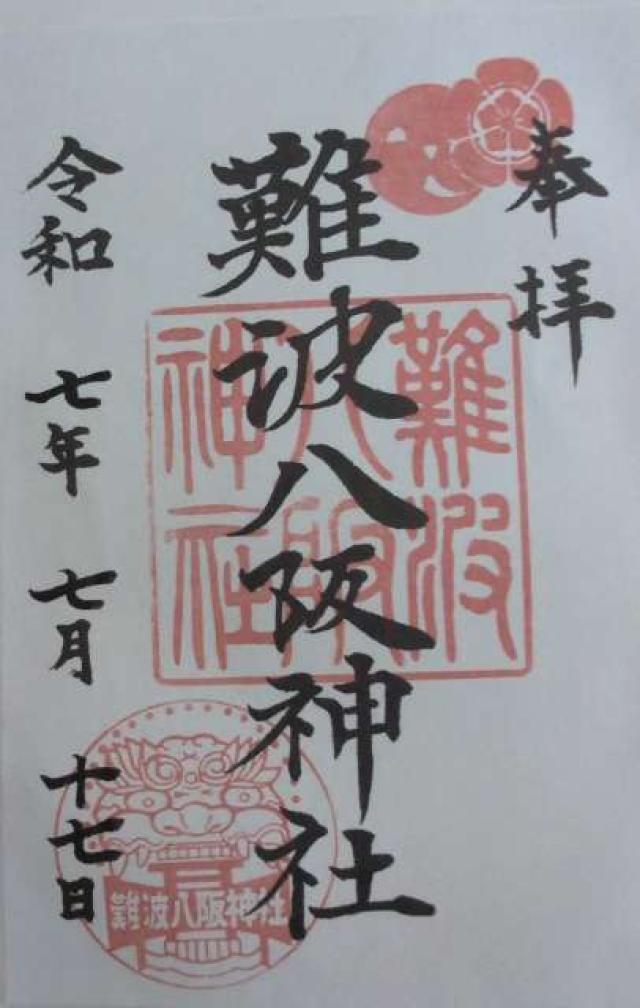 奉拝
難波八阪神社
令和 七年 七月 十七日
難波
八阪
神社
難波八阪神社